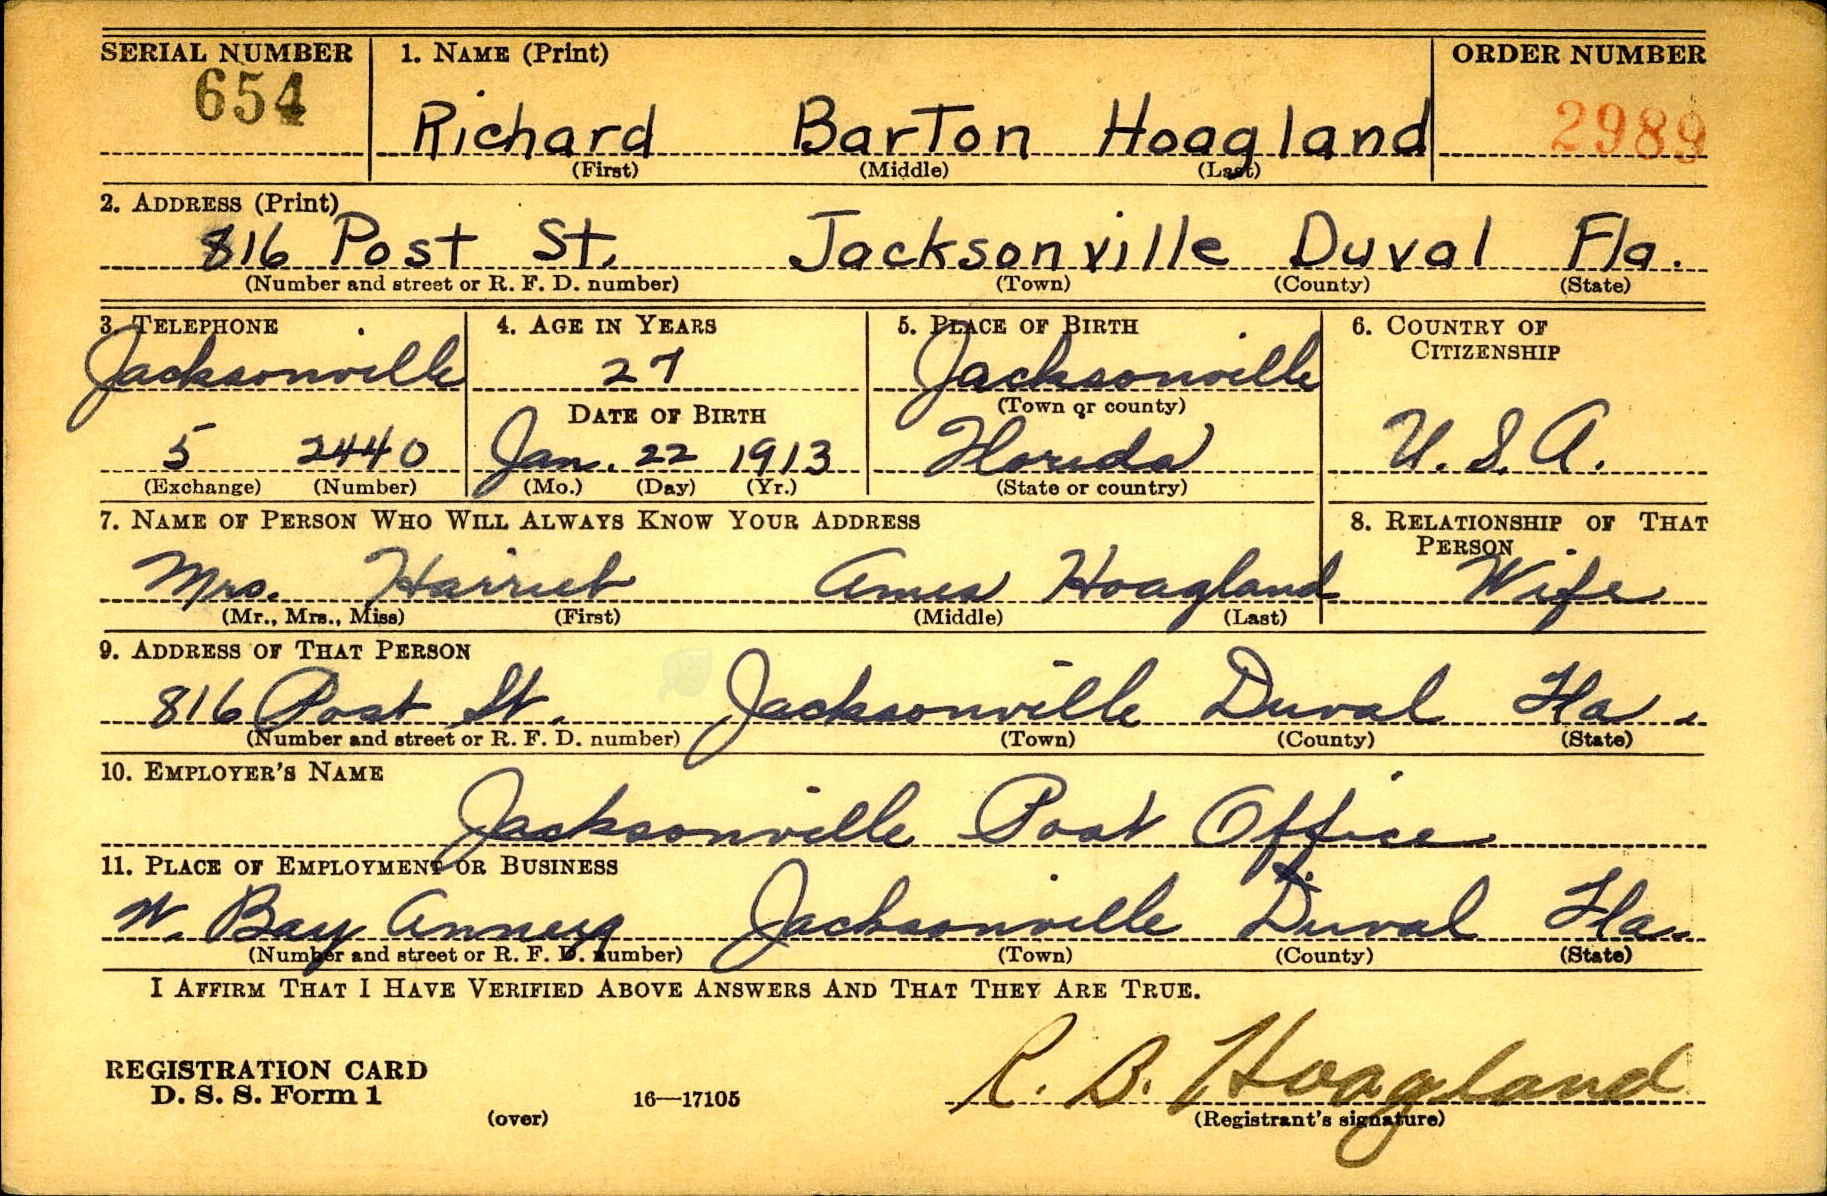 SERIAL NUMBER 1. NAME (Print) ORDER NUMBER
654 Richard Barton Hoagland 2989
(First) (Middle) (Last)
2. ADDRESS (Print)
816 Post St. Jacksonville Duval Fla.
(Number and street or R. F. D. number) (Town) (County) (State)
3. TELEPHONE 4. AGE IN YEARS 5. PLACE OF BIRTH 6. COUNTRY OF CITIZENSHIP
Jacksonville 27 Jacksonville
DATE OF BIRTH (Town or county)
5 2440 Jan. 22 1913 Florida U.S.A.
(Exchange) (Number) (Mo.) (Day) (Yr.) (State or country)
7. NAME OF PERSON WHO WILL ALWAYS KNOW YOUR ADDRESS 8. RELATIONSHIP OF THAT PERSON
Mrs. Harriet Ames Hoagland Wife
(Mr., Mrs., Miss) (First) (Middle) (Last)
9. ADDRESS OF THAT PERSON
816 Post St. Jacksonville Duval Fla.
(Number and street or R. F. D. number) (Town) (County) (State)
10. EMPLOYER'S NAME
Jacksonville Post Office
11. PLACE OF EMPLOYMENT OR BUSINESS
W. Bay Jacksonville Duval Fla.
(Number and street or R. F. D. number) (Town) (County) (State)
I AFFIRM THAT I HAVE VERIFIED ABOVE ANSWERS AND THAT THEY ARE TRUE.
REGISTRATION CARD
D. S. S. Form 1 16—17105 R. B. Hoagland
(over) (Registrant's signature)